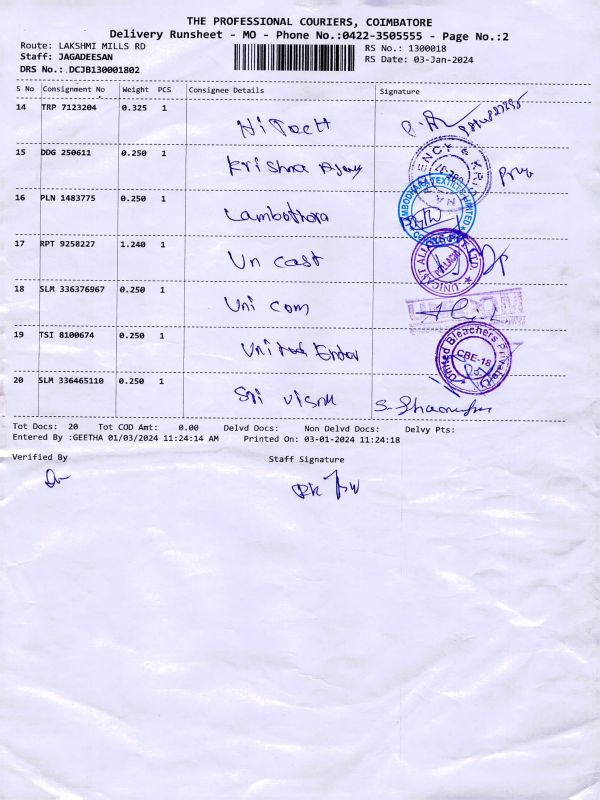 THE PROFESSIONAL COURIERS, COIMBATORE
Delivery Runsheet - MO - Phone No.:0422-3505555 - Page No.:2
Route: LAKSHMI MILLS RD
RS No.: 1300018
Staff: JAGADEESAN
RS Date: 03-Jan-2024
DRS No.:DCJB130001802
S No Consignment No Weight PCS Consignee Details Signature
14 TRP 7123204 0.325 1
15 DDG 250611 0.250 1 Krishna
16 PLN 1483775 0.250 1 Lambothara
17 RPT 9258227 1.240 1 Un cast
18 SLM 336376967 0.250 1 Uni com
19 TSI 8100674 0.250 1 United
20 SLM 336465110 0.250 1 Sri
UNICAST ALLOYS PVT. LTD.
United Bleachers Private
CBE-18
Tot Docs: 20 Tot COD Amt: 0.00 Delvd Docs: Non Delvd Docs: Delvy Pts:
Entered By :GEETHA 01/03/2024 11:24:14 AM Printed On: 03-01-2024 11:24:18
Verified By Staff Signature